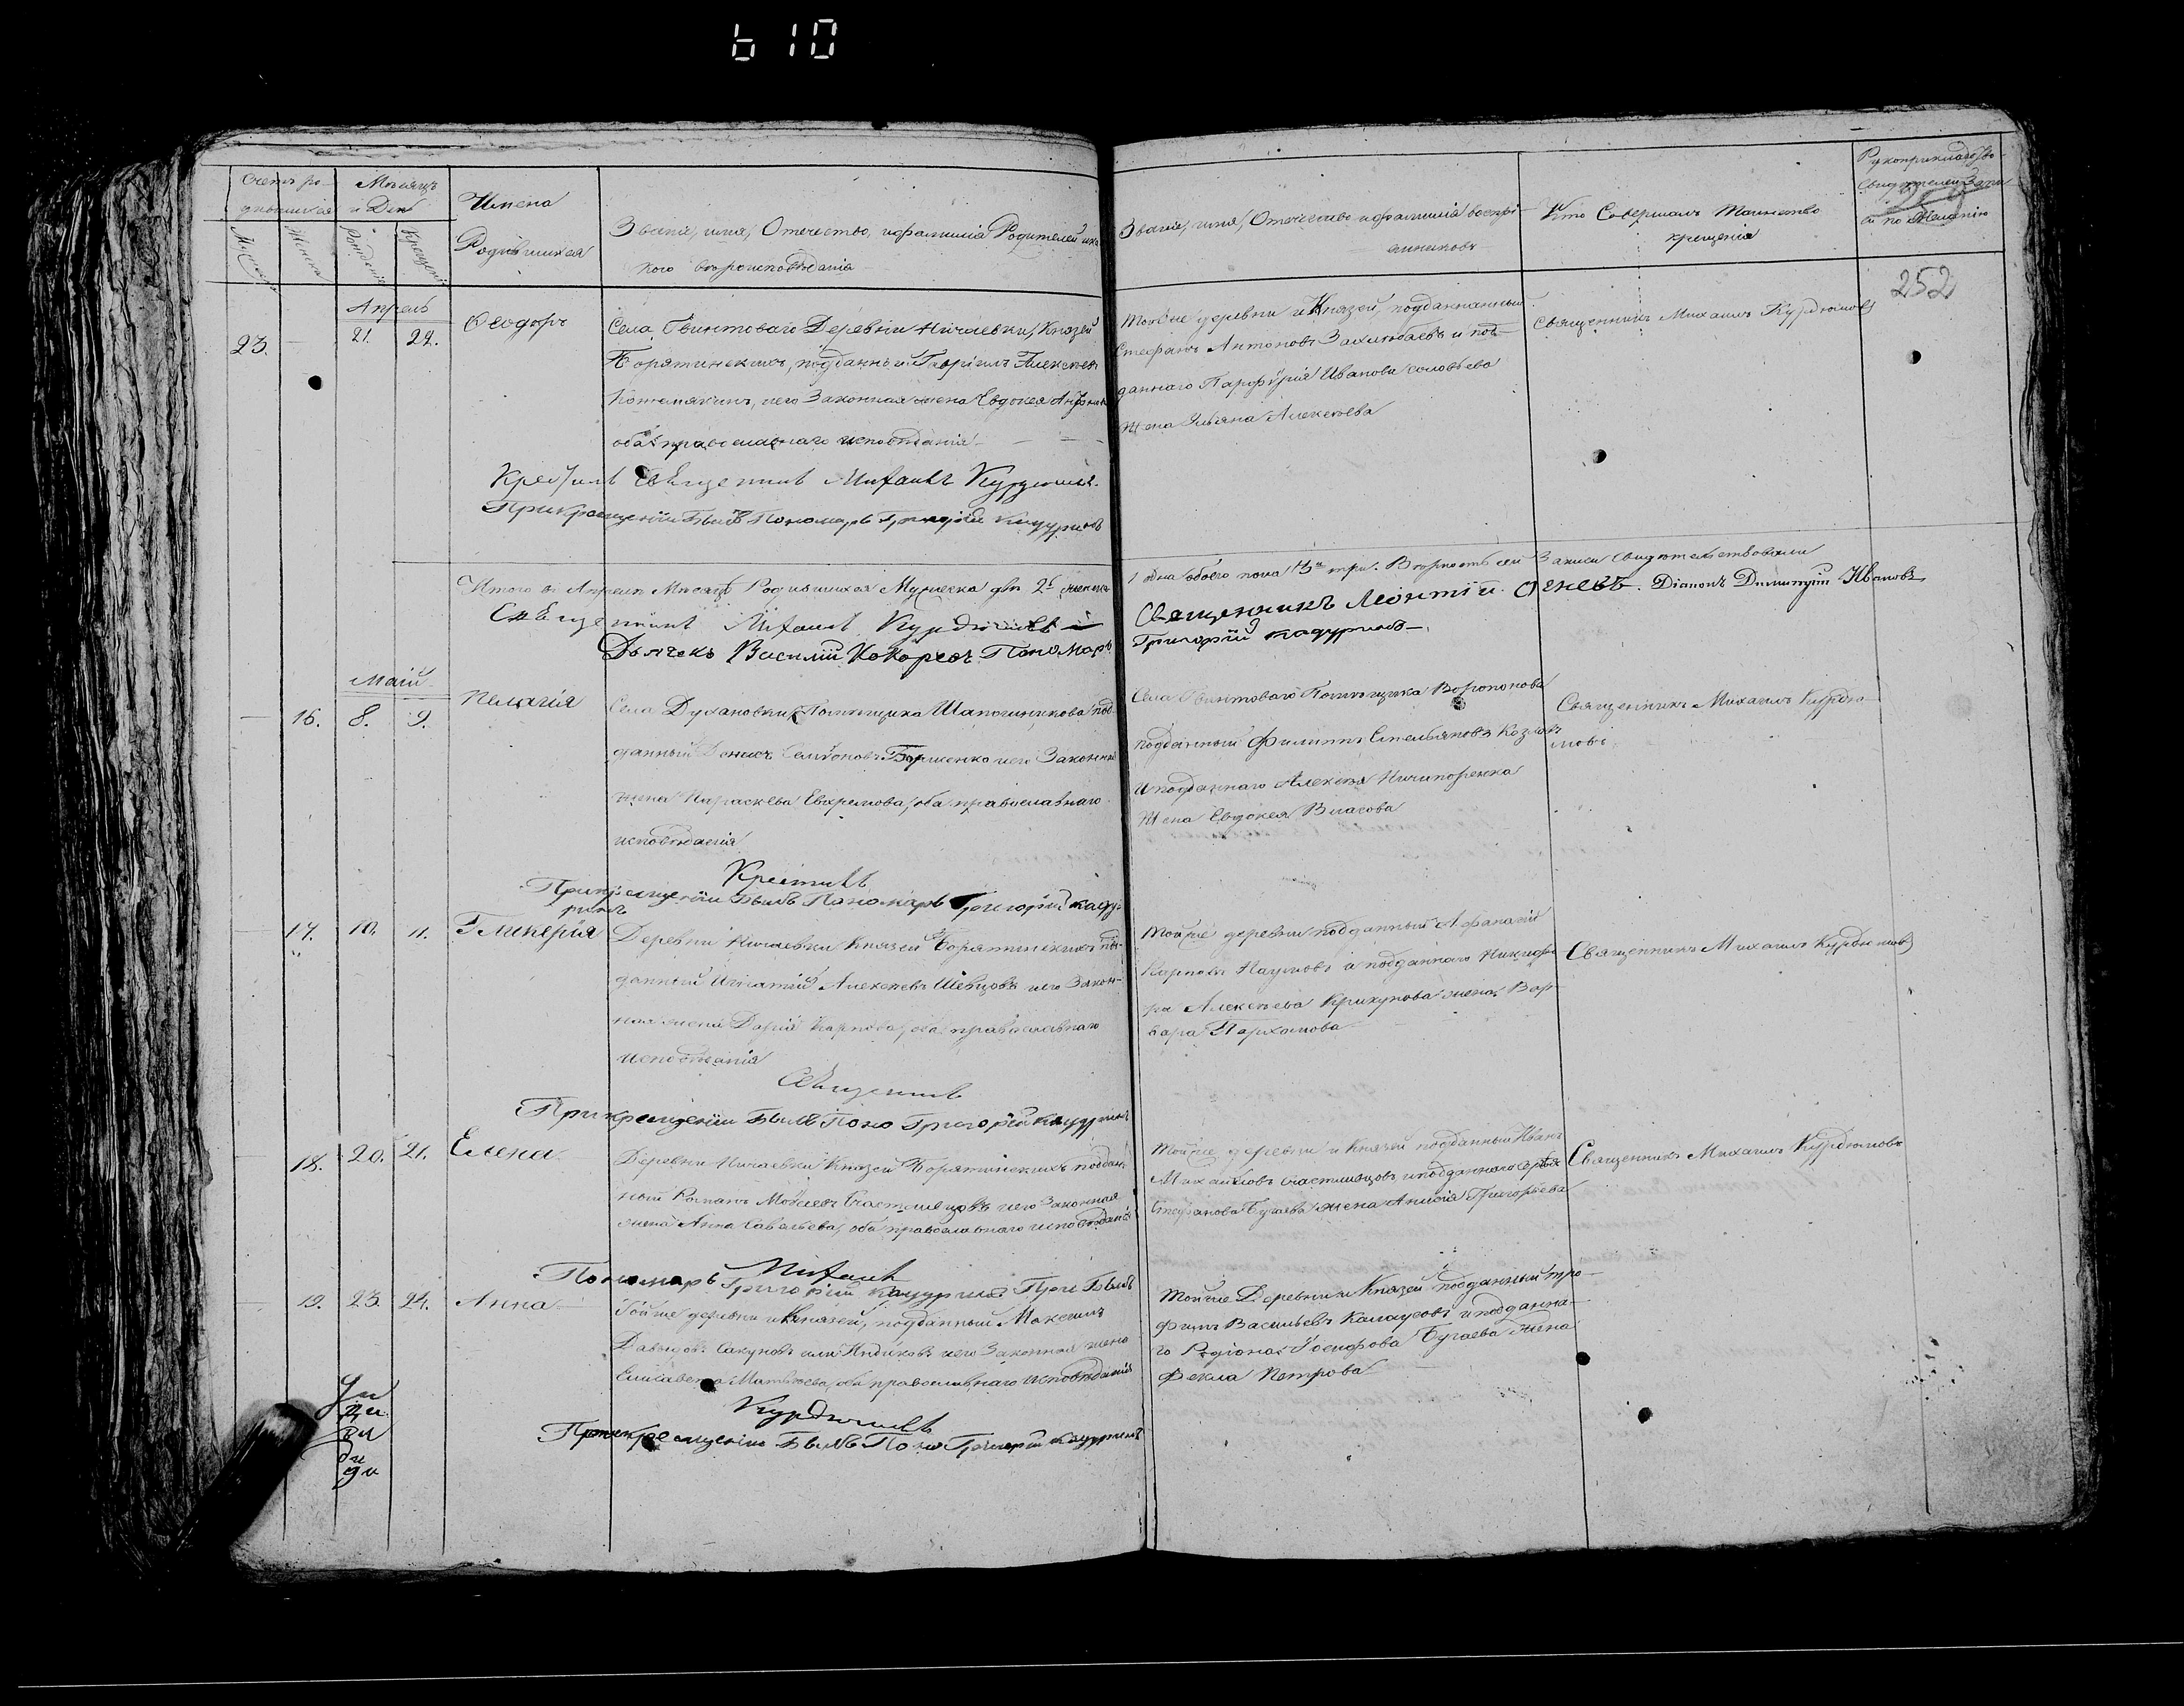 610
Счетъ ро-
дившихся
Мѣсяцъ
и День
Имена
Родившихся
Званіе, имя, Отечество, и фамилія Родителей и ка-
кого вѣроисповѣданія
Мужеска
Женска
Рожденія
Крещенія
Званіе, имя, Отечество и фамилія воспрі-
емниковъ
Кто Совершалъ Таинство
крещенія
Рукоприкладство
свидѣтелей Записи
по Желанію
252
Апрель
23. 21. 22. Ѳеодоръ
Села Гвинтоваго Деревни Ничаевки, Князей
Борятинскихъ, подданный Гавріилъ Алексеевъ
Кожемякинъ, и его Законная жена Евдокея
оба православнаго исповѣданія
Крестилъ Священникъ Михаилъ Курдюмовъ
При крещеніи былъ Пономарь Григорій Кадуринъ
Тойже деревни и Князей, подданный
Стефанъ Антоновъ и под-
даннаго Парфирія Иванова Соловьева
жена Ульяна Алексеева
Священникъ Михаилъ Курдюмовъ
Итого въ Апрелѣ Мѣсяцѣ Родившихся Мужеска два 2. женска
1 одна обоего пола 3 три. Вѣрность сей Записи свидетельствовали
Священникъ Михаилъ Курдюмовъ
Священникъ Леонтій Огневъ. Діаконъ Димитрій Ивановъ
Дьячекъ Василій Кокоревъ Пономарь
Григорій Кадуринъ
Маій
16. 8. 9. Пелагія
Села Духановки, Помѣщика Шапочникова под-
данный Денисъ Семіоновъ и его Законная
жена Параскева Евфремова, оба православнаго
исповѣданія
Крестилъ
При крещеніи былъ Пономарь Григорій Каду-
ринъ
Села Гвинтоваго Помѣщика Воропонова
подданный Филиппъ Емельяновъ
и подданнаго Алексея Ничипоренка
жена Евдокея Власова
Священникъ Михаилъ Курдю-
мовъ
17. 10. 11. Гликерія
Деревни Ничаевки Князей Борятинскихъ под-
данный Игнатій Алексеевъ Шевцовъ и его Закон-
ная жена Дарія Карпова, оба православнаго
исповѣданія
Священникъ
При крещеніи былъ Поно Григорій Кадуринъ
Тойже деревни подданный Афанасій
Карповъ Наумовъ и подданнаго Никифо-
ра Алексеева Крикунова жена Вар-
вара Пархомова
Священникъ Михаилъ Курдюмовъ
18. 20. 21. Елена
Деревни Ничаевки Князей Борятинскихъ поддан-
ный Романъ Моисеевъ Счастливцовъ и его Законная
жена Анна Савельева, оба православнаго исповѣданія
Михаилъ
Пономарь Григорій Кадуринъ При Былъ
Тойже деревни и Князей подданный Иванъ
Михайловъ Счастливцовъ и подданнаго Сергея
Стефанова Бугаева жена Анисія Григорьева
Священникъ Михаилъ Курдюмовъ
19. 23. 24. Анна
Тойже деревни и Князей, подданный Максимъ
Давыдовъ Сакуновъ или Индиковъ и его Законная жена
Елисавета Матвѣева, оба православнаго исповѣданія
Курдюмовъ
При крещеніи Былъ Поно Григорій Кадуринъ
Тойже Деревни и Князей подданный Тро-
фимъ Васильевъ Калаусовъ и подданна-
го Родіона Іосифова Бугаева жена
Фекла Петрова